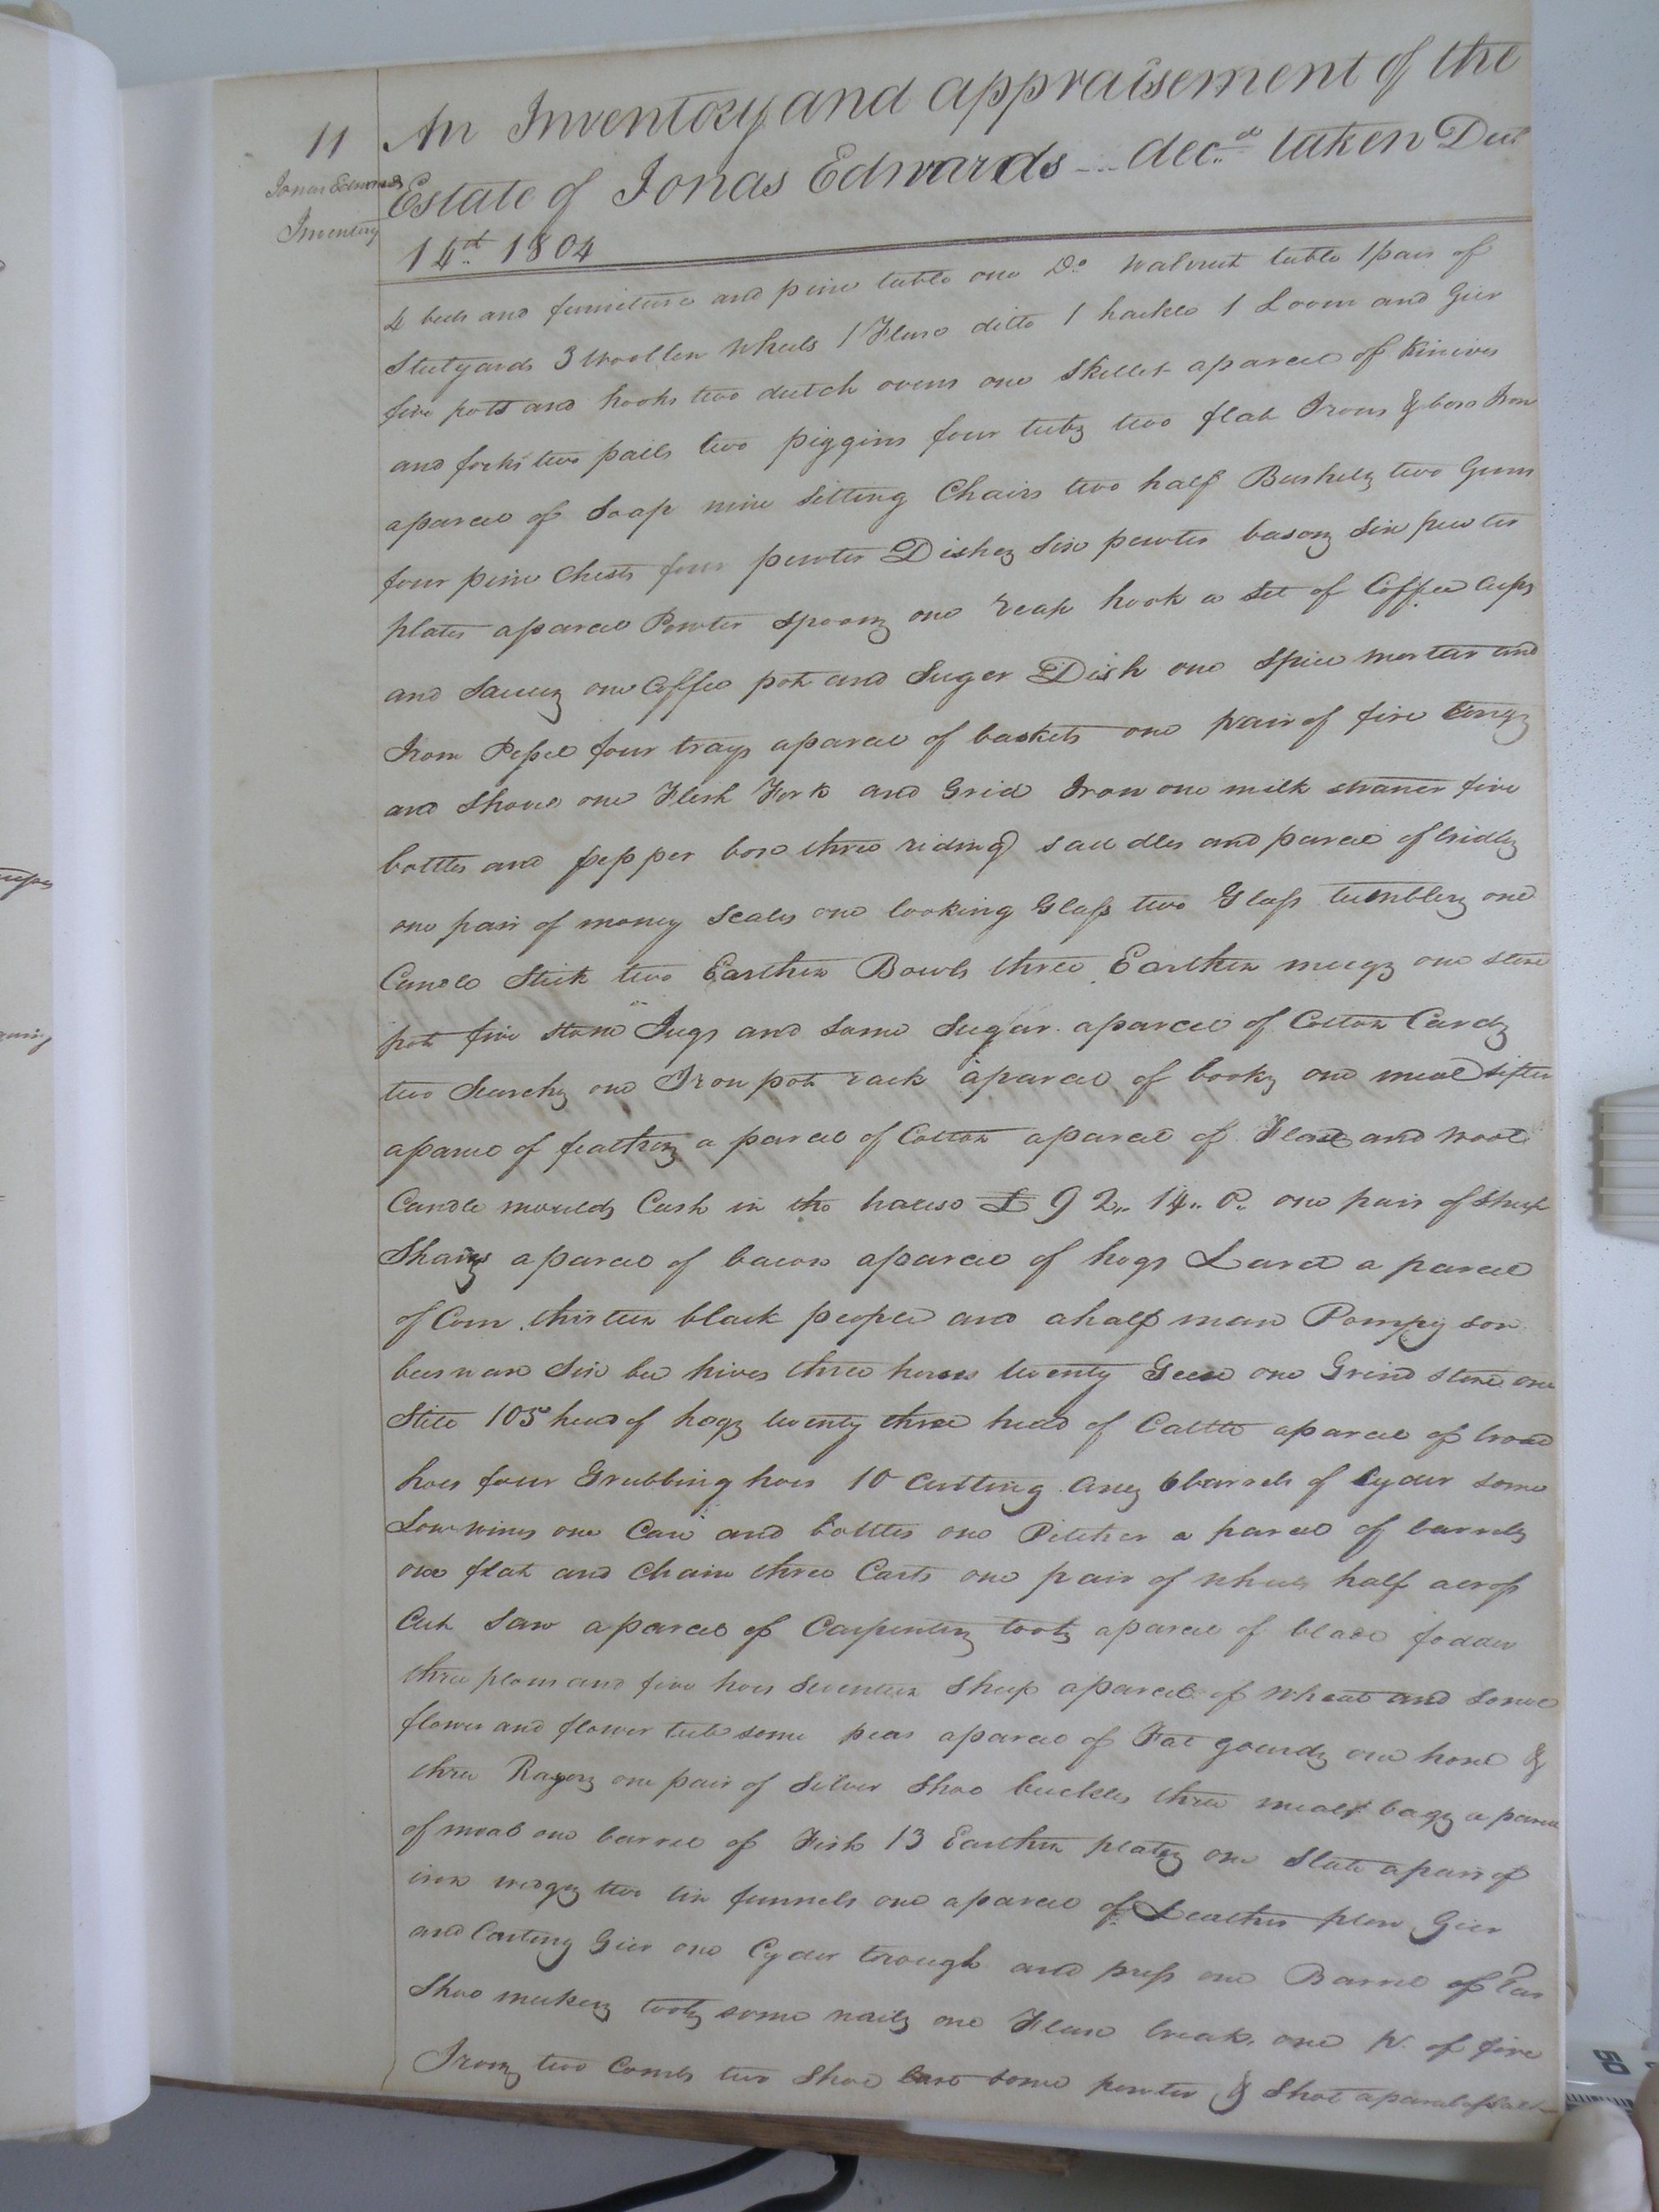 11
Jonas Edwards
Inventory
An Inventory and appraisement of the
Estate of Jonas Edwards dec.d taken Decr
14th 1804
4 beds and furniture and pine table one Do Walnut table 1 pair of
Stilyards 3 Woollen Wheels 1 Flax ditto 1 hackle 1 Loom and Gier
five pots and hooks two dutch ovens one Skillet a parcel of Knives
and forks two pails two piggins four tubs two flat Irons & box Iron
a parcel of Soap nine Sitting Chairs two half Bushels two Guns
four pine Chests four pewter Dishes Six pewter basons Six pewter
plates a parcel Pewter Spoons one reap hook a Set of Coffee Cups
and Saucers one Coffee pot and Suger Dish one Spice mortar and
Iron Pessel four trays a parcel of baskets one pair of fire tongs
and Shovel one Flesh Fork and Grid Iron one milk straner five
bottles and pepper box three riding saddles and parcel of bridles
one pair of money Scales one looking Glass two Glass tumblers one
Candle Stick two Earthen Bowls three Earthen mugs one stone
pot five stone Jugs and Some Sugar a parcel of Cotton Cards
two Searches one Iron pot rack a parcel of books one meal sifter
a parcel of feathers a parcel of Cotton a parcel of Flax and wool
Candle moulds Cash in the house £ 92,, 14,, 0,, one pair of Sheep
Shears a parcel of bacon a parcel of hogs Lard a parcel
of Corn thirteen black people and a half man Pompy son
Six bee hives three horses twenty Geese one Grind stone one
Still 105 head of hogs twenty three head of Cattle a parcel of broad
hoes four Grubbing hoes 10 Cutting axes 6 barrels of Cyder some
Low wines one Case and bottles one Pitcher a parcel of barrels
one flat and Chain three Carts one pair of wheels half across
Cut Saw a parcel of Carpenters tools a parcel of blade fodder
three plows and five hoes Seventeen Sheep a parcel of Wheat and Some
flower and flower tub some peas a parcel of Fat gourds one hone &
three Razors one pair of Silver Shoe buckles three meal bags a parcel
of meal one barrel of Fish 13 Earthen plates one Slate a pair of
iron wedges two tin funnels one a parcel of Leather plow Gier
and Carting Gier one Cyder trough and press one Barrel of Tar
Shoe makers tools some nails one Flax break one pr. of fire
Irons two Combs two Shoe some pewter & Shot a parcel of